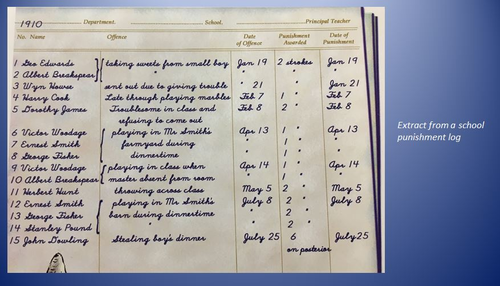 1910 Department. School. Principal Teacher
No. Name Offence Date of Offence Punishment Awarded Date of Punishment
1 Geo Edwards taking sweets from small boy Jan 19 2 strokes Jan 19
2 Albert Breakspear " " " "
3 Wyn House sent out due to giving trouble " 21 Jan 21
4 Harry Cook Late through playing marbles Feb 7 1 " Feb 7
5 Dorothy James Troublesome in class and Feb 8 2 " Feb 8
refusing to come out
6 Victor Woodage playing in Mr Smith's Apr 13 1 " Apr 13
7 Ernest Smith farmyard during 1 "
8 George Fisher dinnertime 1 "
9 Victor Woodage playing in class when Apr 14 1 " Apr 14
10 Albert Breakspear master absent from room 1 "
11 Herbert Hunt throwing across class May 5 2 " May 5
12 Ernest Smith playing in Mr Smith's July 8 2 " July 8
13 George Fisher barn during dinnertime 2 "
14 Stanley Pound " 2 "
15 John Dowling Stealing boy's dinner July 25 6 July 25
on posterior
Extract from a school
punishment log